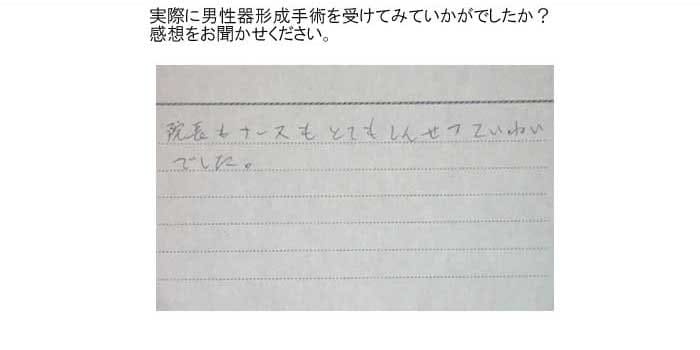 実際に男性器形成手術を受けてみていかがでしたか？
感想をお聞かせください。
院長もナースもとてもしんせつていねい
でした。